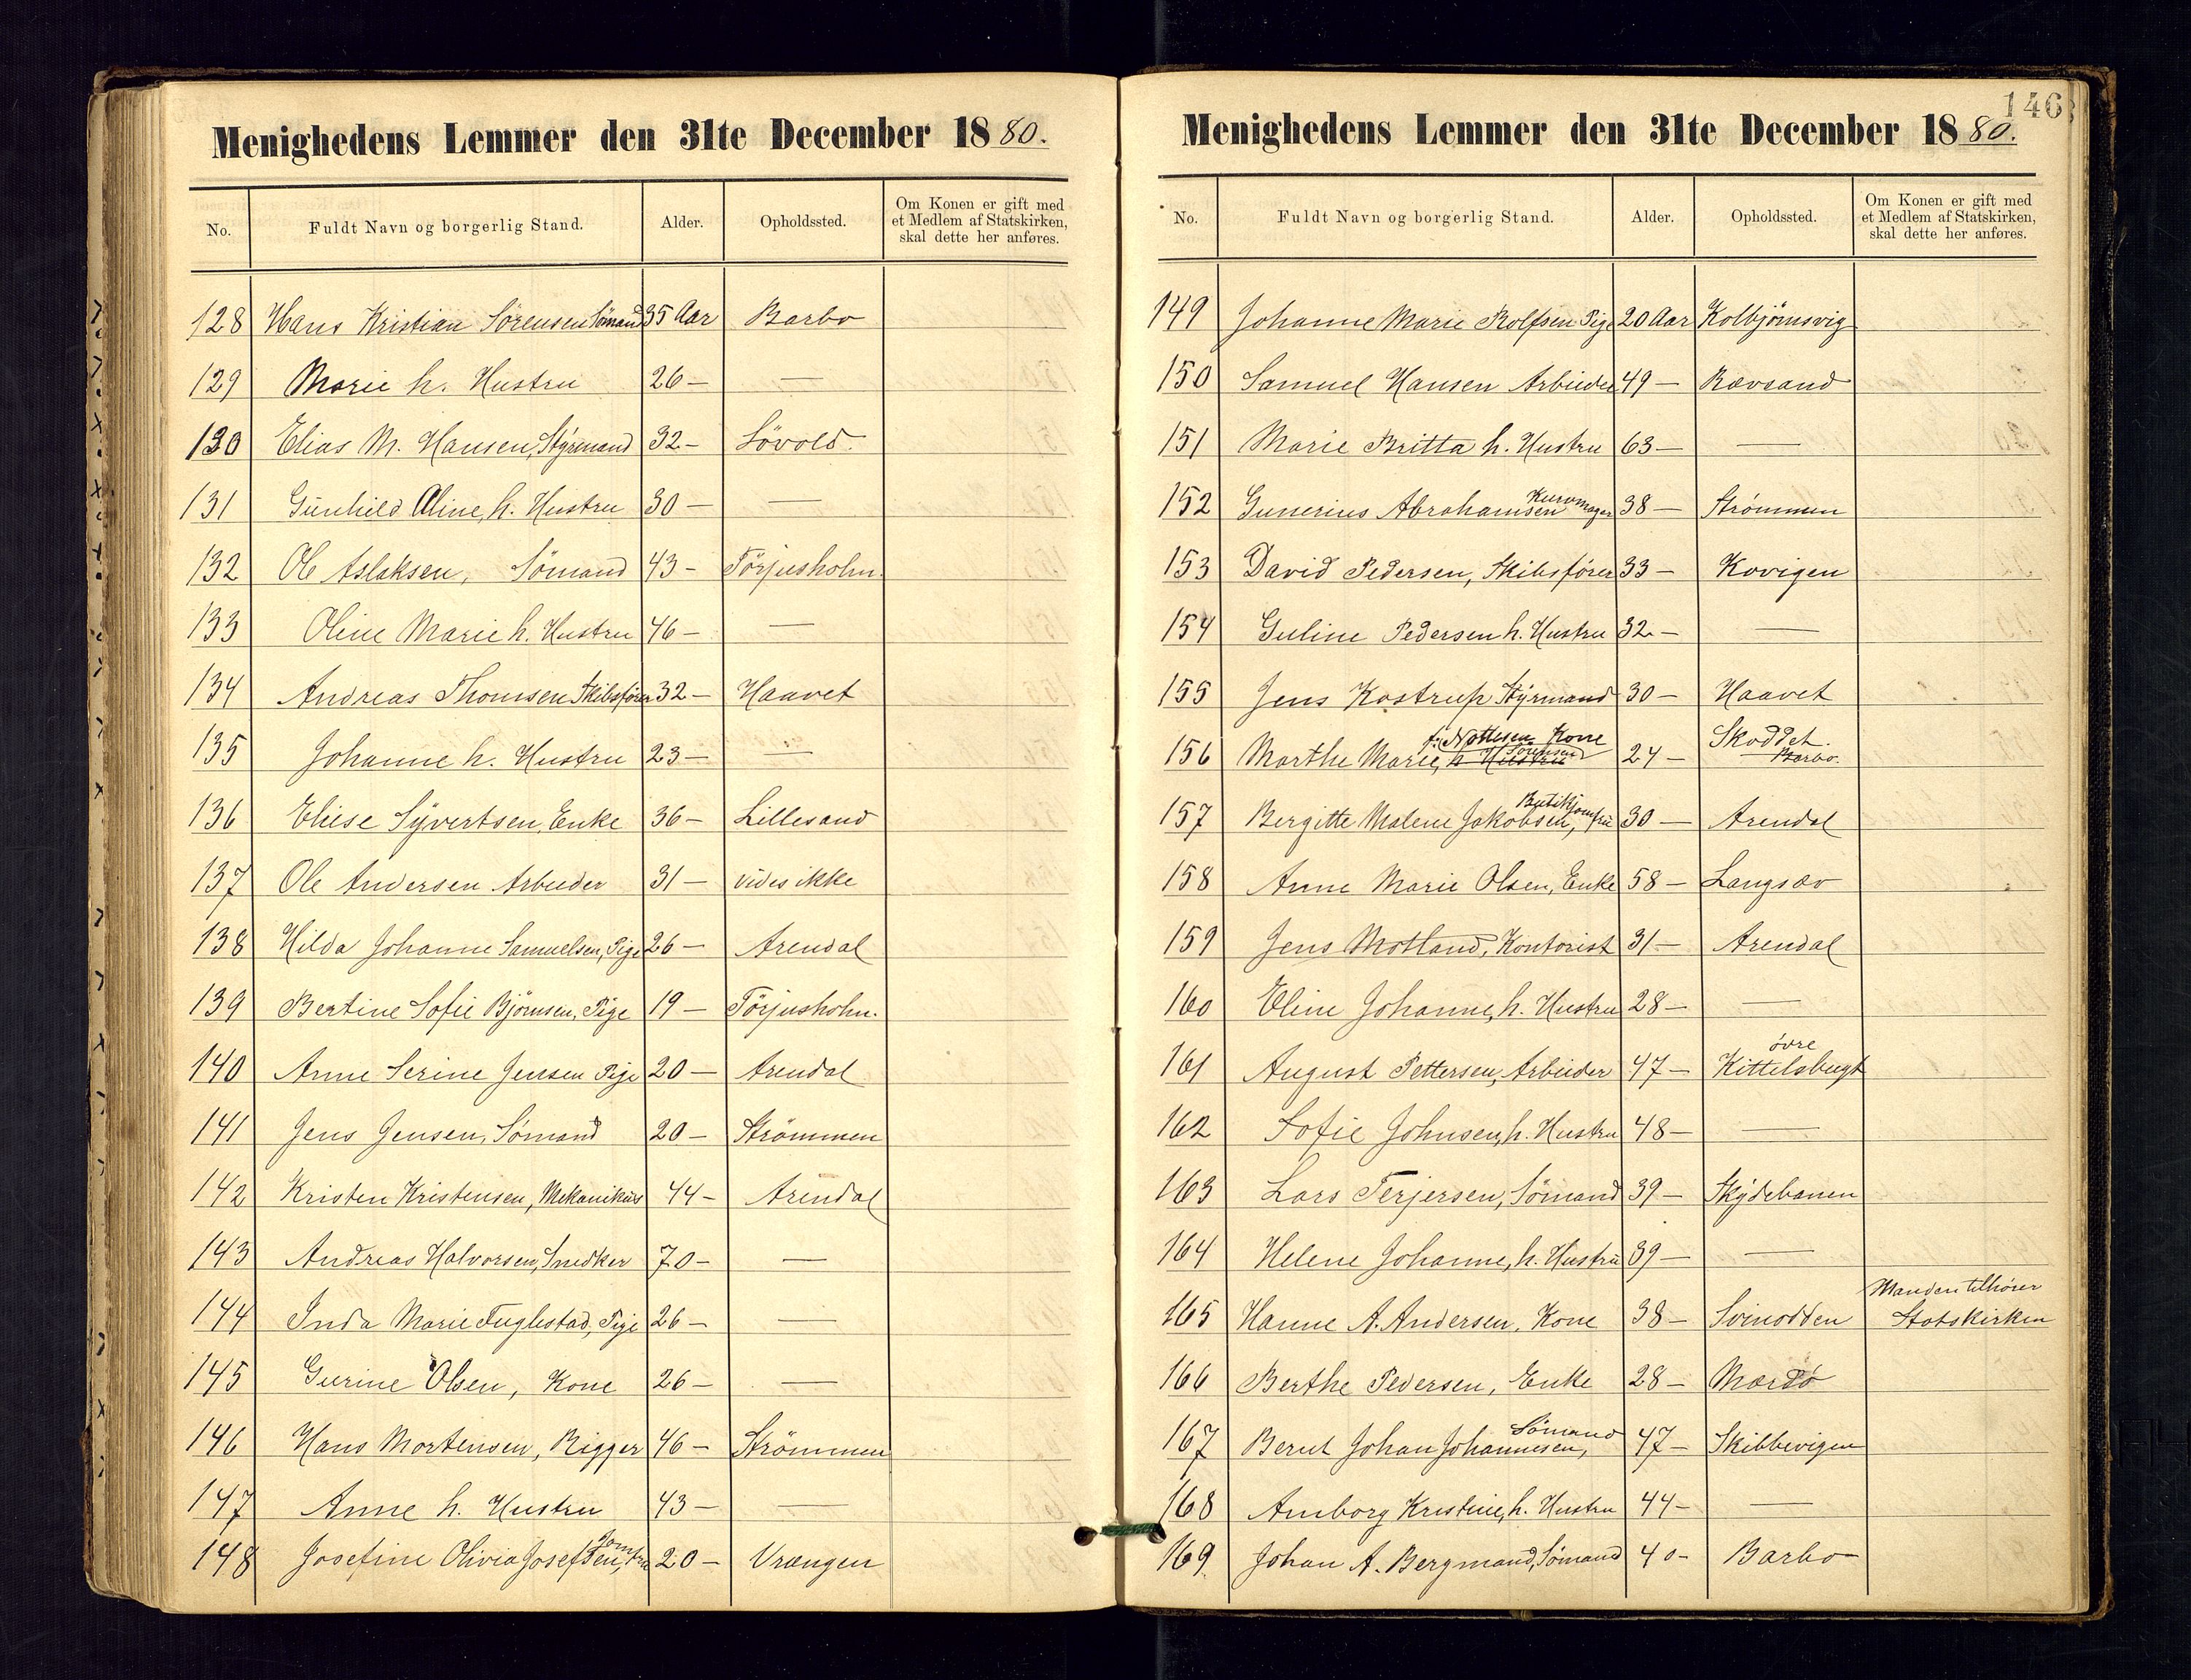 Menighedens Lemmer den 31te December 1880.
No. Fuldt Navn og borgerlig Stand. Alder. Opholdssted. Om Konen er gift med et Medlem af Statskirken, skal dette her anføres.
128 Hans Kristian Sörensen Sömand 35 Aar Barbo
129 Marie h. Hustru 26 —
130 Elias M. Hansen, Styrmand 32 — Lövold.
131 Gunhild Oline, h. Hustru 30 — —
132 Ole Aslaksen, Sömand 43 — Törjusholm.
133 Oline Marie h. Hustru 46 — —
134 Andreas Thomsen Skibsförer 32 — Haavet
135 Johanne h. Hustru 23 — —
136 Eliese Syvertsen, Enke 36 — Lillesand
137 Ole Andersen Arbeider 31 — vides ikke
138 Hilda Johanne Samuelsen, Pige 26 — Arendal
139 Bertine Sofie Björnsen, Pige 19 — Törjusholm.
140 Anne Serine Jensen Pige 20 — Arendal
141 Jens Jensen, Sömand 20 — Strömmen
142 Kristen Kristensen, Mekanikus 44 — Arendal
143 Andreas Halvorsen, Snedker 70 — —
144 Inda Marie Fuglestad, Pige 26 — —
145 Gurine Olsen, Kone 26 — —
146 Hans Mortensen, Rigger 46 — Strömmen
147 Anne h. Hustru 43 — —
148 Josefine Olivia Josefsen, Jomfru 20 — Vrængen
146
Menighedens Lemmer den 31te December 1880.
No. Fuldt Navn og borgerlig Stand. Alder. Opholdssted. Om Konen er gift med et Medlem af Statskirken, skal dette her anføres.
149 Johanne Marie Rolfsen Pige 20 Aar Kolbjörnsvig
150 Samuel Hansen Arbeider 49 — Rævesand
151 Marie Britta h. Hustru 63 — —
152 Gunerius Abrahamsen Kurvmager 38 — Strömmen
153 David Pedersen, Skibsförer 33 — Kovigen
154 Guline Pedersen h. Hustru 32 — —
155 Jens Kostrup Styrmand 30 — Haavet
156 Marthe Marie, h. Hustru Sörensen Kone 24 — Skoddet. Barbo.
157 Bergitte Malene Jakobsen, Butikjomfru 30 — Arendal
158 Anne Marie Olsen, Enke 58 — Langsæv
159 Jens Motland, Kontorist 31 — Arendal
160 Eline Johanne, h. Hustru 28 — —
161 August Pettersen, Arbeider 47 — övre Kittelsbugt
162 Sofie Johnsen, h. Hustru 48 — —
163 Lars Terjersen, Sömand 39 — Skydebanen
164 Helene Johanne, h. Hustru 39 — —
165 Hanne A. Andersen, Kone 38 — Svinodden Manden tilhörer Statskirken
166 Berthe Pedersen, Enke 28 — Mærdö
167 Bernt Johan Johannesen, Sömand 47 — Skibbevigen
168 Amborg Kristine, h. Hustru 44 — —
169. Johan A. Bergmand, Sömand 40 — Barbo